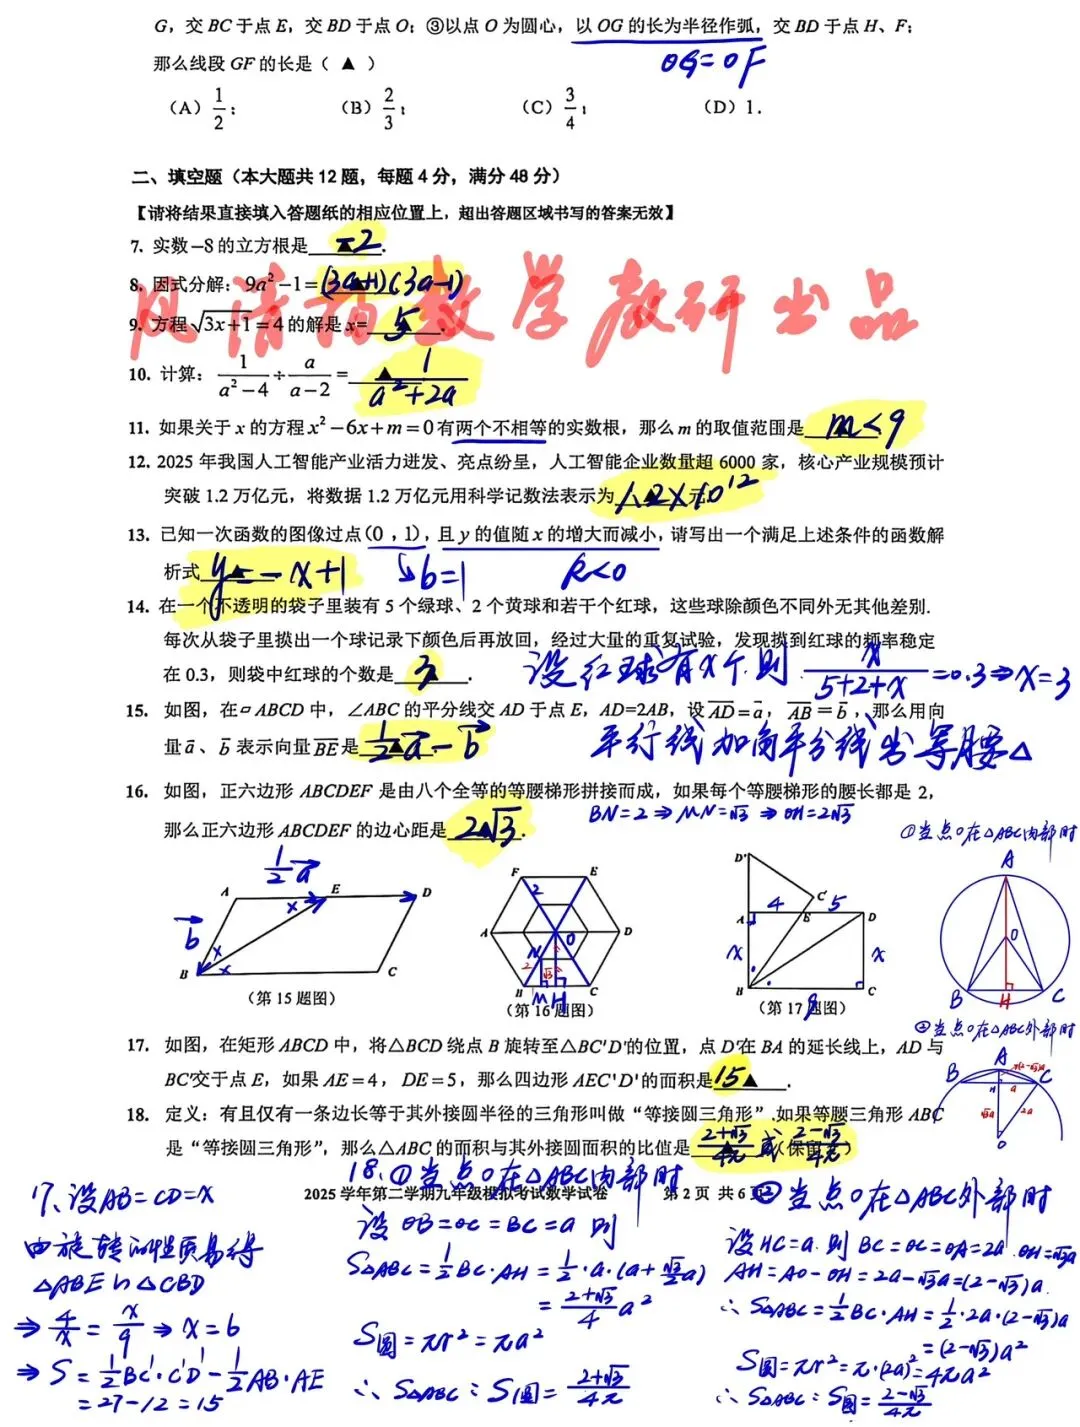 G，交 BC 于点 E，交 BD 于点 O；③以点 O 为圆心，以 OG 的长为半径作弧，交 BD 于点 H、F；
OG=OF
那么线段 GF 的长是（ ▲ ）
（A）1/2； （B）2/3； （C）3/4； （D）1．
二、填空题（本大题共 12 题，每题 4 分，满分 48 分）
【请将结果直接填入答题纸的相应位置上，超出答题区域书写的答案无效】
7. 实数 −8 的立方根是 ▲ . -2
8. 因式分解：9a²−1= (3a+1)(3a-1)
9. 方程 √(3x+1)=4 的解是 x= ▲ . 5
数学教研出品
10. 计算：1/(a²−4) ÷ a/(a−2) = ▲ 1/(a²+2a)
11. 如果关于 x 的方程 x²−6x+m=0 有两个不相等的实数根，那么 m 的取值范围是 m<9
12. 2025 年我国人工智能产业活力迸发、亮点纷呈，人工智能企业数量超 6000 家，核心产业规模预计
突破 1.2 万亿元，将数据 1.2 万亿元用科学记数法表示为 1.2×10¹² 元.
13. 已知一次函数的图像过点(0，1)，且 y 的值随 x 的增大而减小，请写出一个满足上述条件的函数解
析式 ▲ y=-x+1 ↳b=1 k<0
14. 在一个不透明的袋子里装有 5 个绿球、2 个黄球和若干个红球，这些球除颜色不同外无其他差别.
每次从袋子里摸出一个球记录下颜色后再放回，经过大量的重复试验，发现摸到红球的频率稳定
在 0.3，则袋中红球的个数是 3 .
设红球有x个,则 x/(5+2+x)=0.3⇒x=3
15. 如图，在▱ABCD 中，∠ABC 的平分线交 AD 于点 E，AD=2AB，设 AD=a，AB=b，那么用向
量 a、b 表示向量 BE 是 ▲ . 1/2a-b
平行线加角平分线出等腰△
16. 如图，正六边形 ABCDEF 是由八个全等的等腰梯形拼接而成，如果每个等腰梯形的腰长都是 2，
BN=2⇒MN=√3⇒OH=2√3
那么正六边形 ABCDEF 的边心距是 ▲ . 2√3
①当点O在△ABC内部时
1/2a
A E D
b
x x x
B C
（第 15 题图）
F E
2
A O D
N
2 √3
B M H C
（第 16 题图）
D'
C'
A 4 E 5 D
x x
B C
9
（第 17 题图）
A
O
B H C
②当点O在△ABC外部时
A
B H C
(2-√3)a
a
√3a 2a
O
17. 如图，在矩形 ABCD 中，将△BCD 绕点 B 旋转至△BC'D'的位置，点 D'在 BA 的延长线上，AD 与
BC'交于点 E，如果 AE=4，DE=5，那么四边形 AEC'D'的面积是 15▲ .
18. 定义：有且仅有一条边长等于其外接圆半径的三角形叫做“等接圆三角形”.如果等腰三角形 ABC
是“等接圆三角形”，那么△ABC 的面积与其外接圆面积的比值是 ▲ （保留π） (2+√3)/4π 或 (2-√3)/4π
2025 学年第二学期九年级模拟考试数学试卷 第 2 页 共 6 页
17、设AB=CD=x
由旋转的性质易得
△ABE∽△CBD
⇒ 4/x = x/9 ⇒ x=6
⇒ S=1/2BC'·C'D'-1/2AB·AE
=27-12=15
18.①当点O在△ABC内部时
设OB=OC=BC=a 则
S△ABC=1/2BC·AH=1/2·a·(a+√3/2a)
=(2+√3)/4a²
S圆=πr²=πa²
∴S△ABC：S圆=(2+√3)/4π
②当点O在△ABC外部时
设HC=a.则BC=OC=OA=2a.OH=√3a
AH=AO-OH=2a-√3a=(2-√3)a
∴S△ABC=1/2BC·AH=1/2·2a·(2-√3)a
=(2-√3)a²
S圆=πr²=π·(2a)²=4πa²
∴S△ABC：S圆=(2-√3)/4π